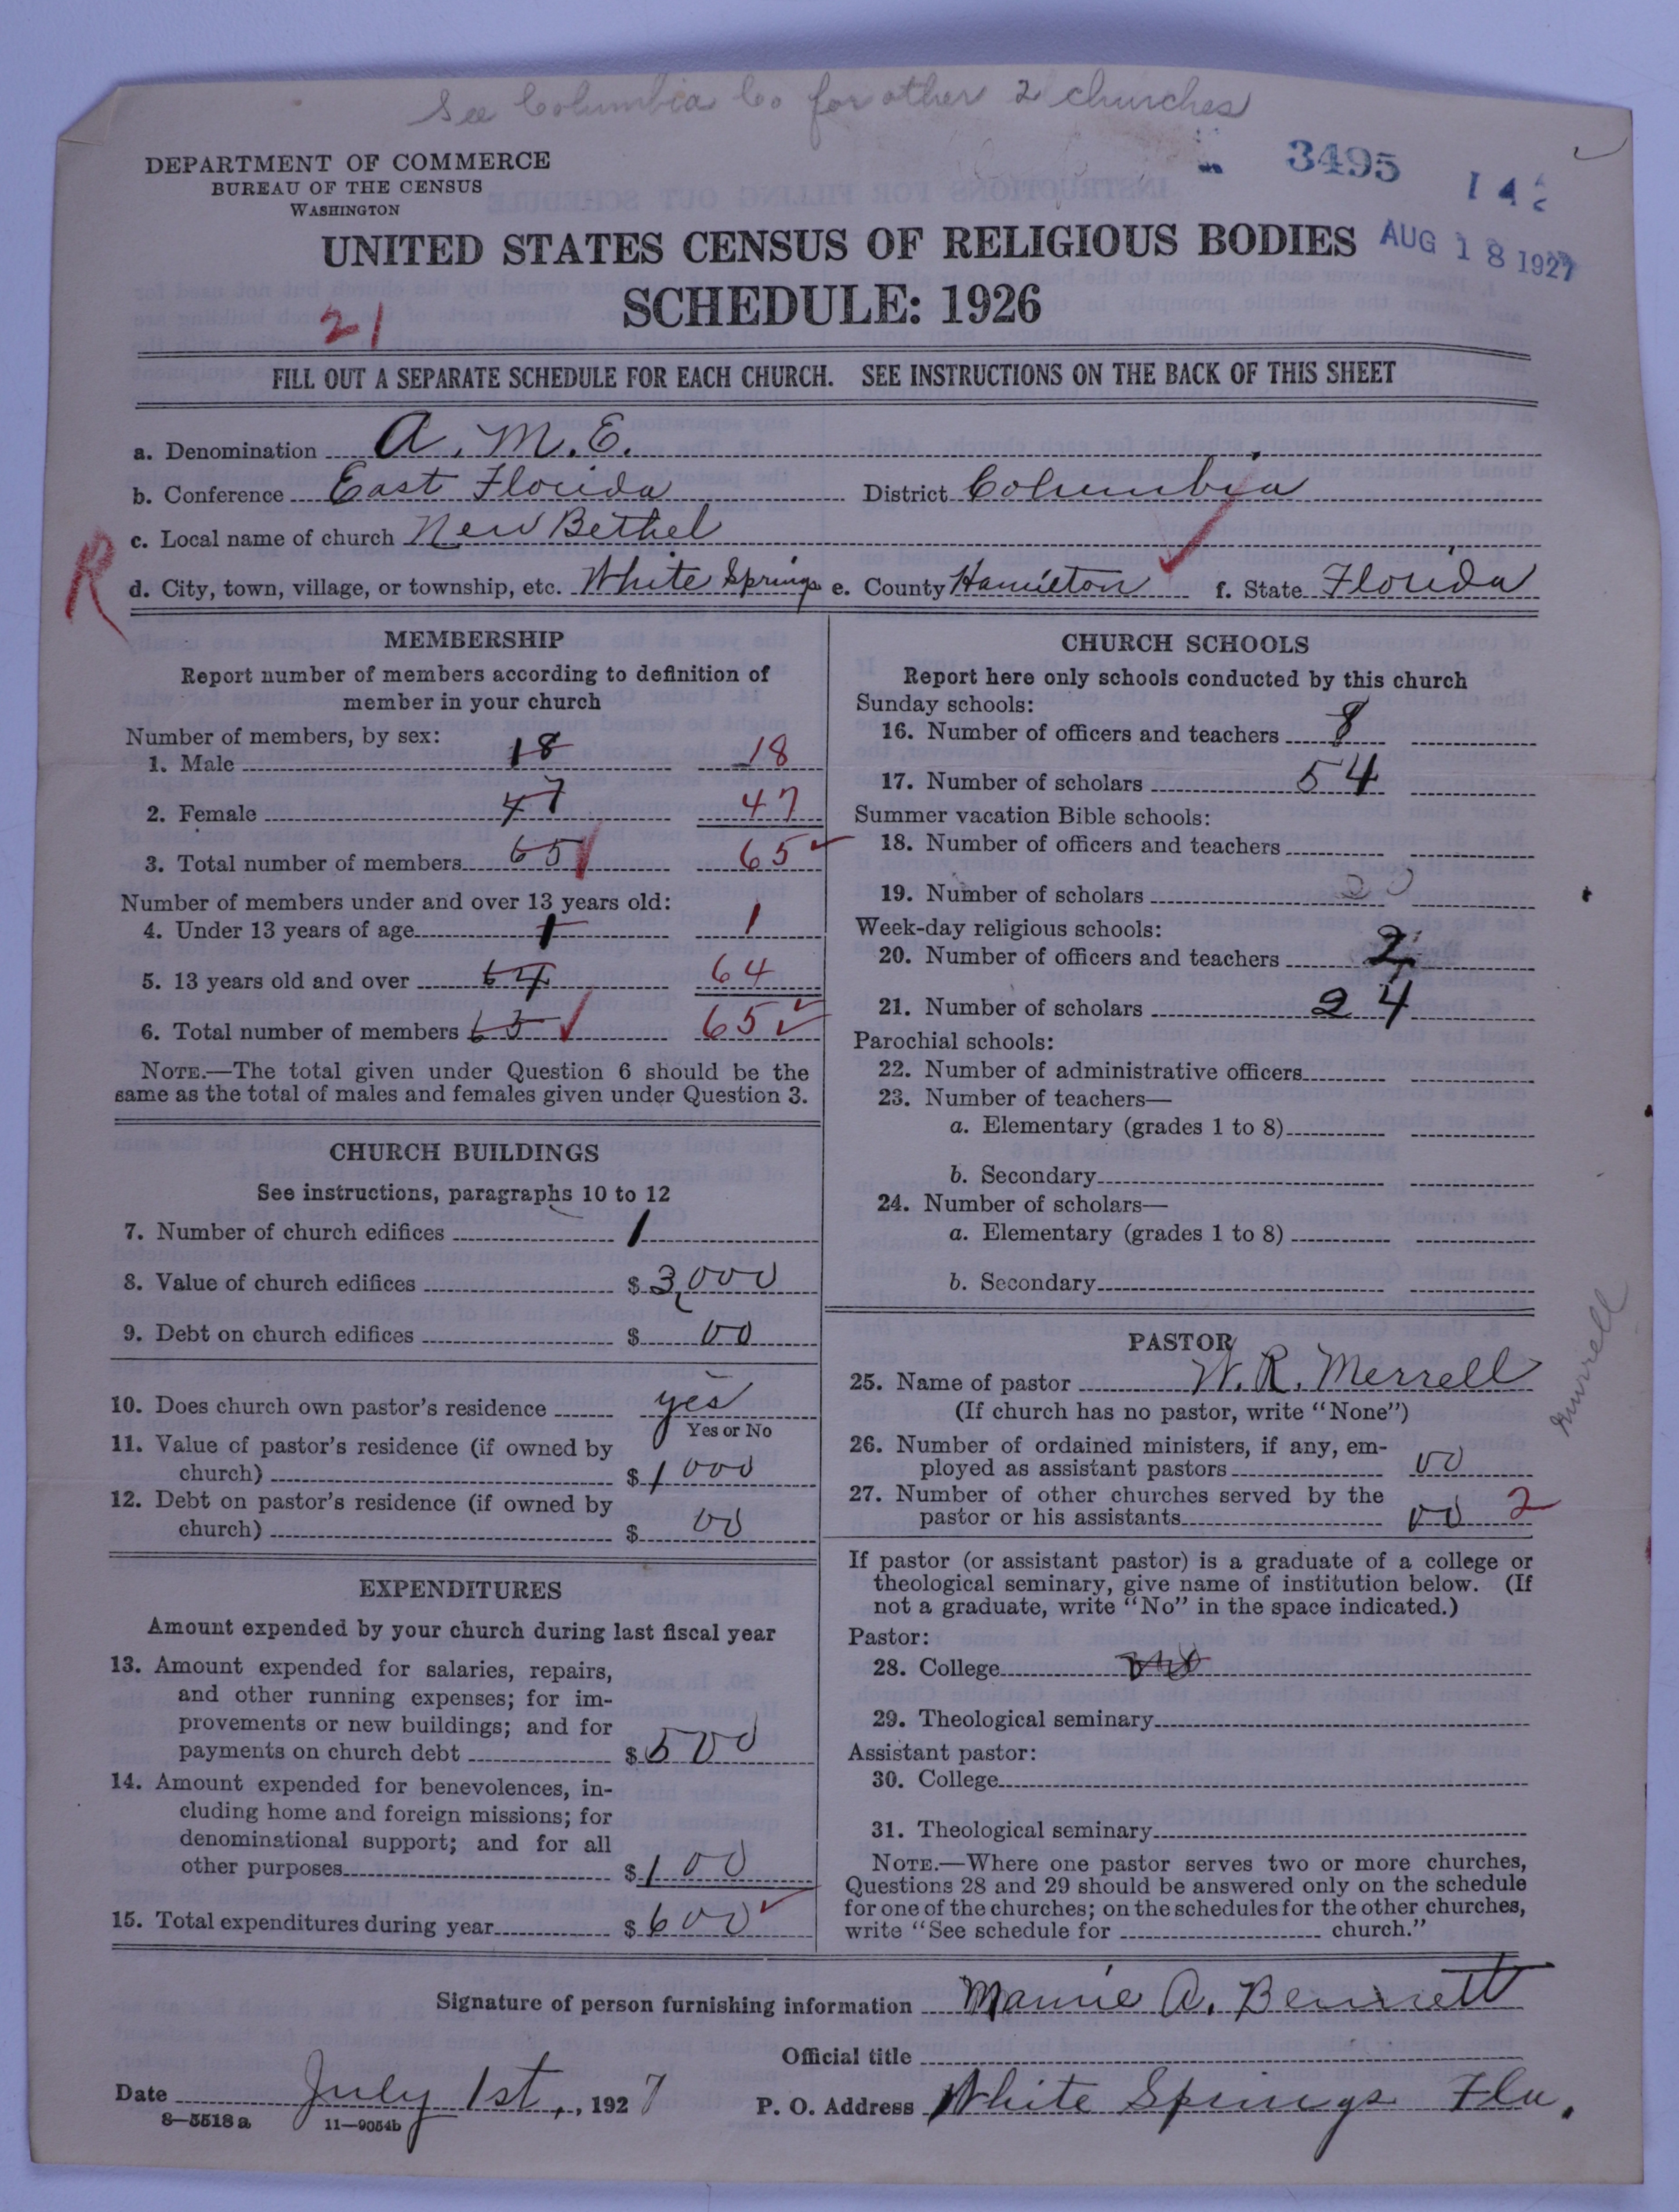 See Columbia Co for other 2 churches
DEPARTMENT OF COMMERCE
BUREAU OF THE CENSUS
WASHINGTON
3495
142
AUG 18 1927
UNITED STATES CENSUS OF RELIGIOUS BODIES
SCHEDULE: 1926
21
FILL OUT A SEPARATE SCHEDULE FOR EACH CHURCH. SEE INSTRUCTIONS ON THE BACK OF THIS SHEET
a. Denomination A. M. E.
b. Conference East Florida District Columbia
c. Local name of church New Bethel
R
d. City, town, village, or township, etc. White Springs e. County Hamilton f. State Florida
MEMBERSHIP
Report number of members according to definition of
member in your church
Number of members, by sex:
1. Male 18 18
2. Female 47 47
3. Total number of members 65 65
Number of members under and over 13 years old:
4. Under 13 years of age 1 1
5. 13 years old and over 64 64
6. Total number of members 65 65
NOTE.—The total given under Question 6 should be the
same as the total of males and females given under Question 3.
CHURCH BUILDINGS
See instructions, paragraphs 10 to 12
7. Number of church edifices 1
8. Value of church edifices $ 3,000
9. Debt on church edifices $ 00
10. Does church own pastor's residence yes
Yes or No
11. Value of pastor's residence (if owned by
church) $ 1000
12. Debt on pastor's residence (if owned by
church) $ 00
EXPENDITURES
Amount expended by your church during last fiscal year
13. Amount expended for salaries, repairs,
and other running expenses; for im-
provements or new buildings; and for
payments on church debt $ 500
14. Amount expended for benevolences, in-
cluding home and foreign missions; for
denominational support; and for all
other purposes $ 100
15. Total expenditures during year $ 600
CHURCH SCHOOLS
Report here only schools conducted by this church
Sunday schools:
16. Number of officers and teachers 8
17. Number of scholars 54
Summer vacation Bible schools:
18. Number of officers and teachers
19. Number of scholars
Week-day religious schools:
20. Number of officers and teachers 2
21. Number of scholars 24
Parochial schools:
22. Number of administrative officers
23. Number of teachers—
a. Elementary (grades 1 to 8)
b. Secondary
24. Number of scholars—
a. Elementary (grades 1 to 8)
b. Secondary
PASTOR
25. Name of pastor W. R. Merrell
(If church has no pastor, write "None")
Murrell
26. Number of ordained ministers, if any, em-
ployed as assistant pastors 00
27. Number of other churches served by the
pastor or his assistants 00 2
If pastor (or assistant pastor) is a graduate of a college or
theological seminary, give name of institution below. (If
not a graduate, write "No" in the space indicated.)
Pastor:
28. College
29. Theological seminary
Assistant pastor:
30. College
31. Theological seminary
NOTE.—Where one pastor serves two or more churches,
Questions 28 and 29 should be answered only on the schedule
for one of the churches; on the schedules for the other churches,
write "See schedule for church."
Signature of person furnishing information Mamie A. Bennett
Official title
Date July 1st, 1927 P. O. Address White Springs Fla.
8—5518a 11—9054b